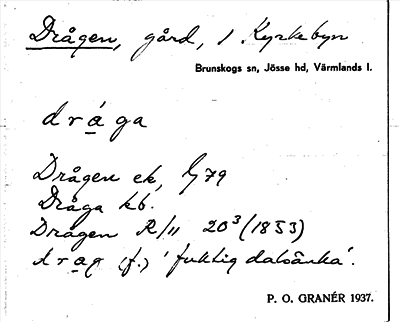 Drågen, gård, i Kyrkebyn
Brunskogs sn, Jösse hd, Värmlands l.
dråga
Drågen ek, G79
Dråga kb.
Drågen R/11 20³ (1853)
drag (f.) 'fuktig dalsänka'.
P. O. GRANÉR 1937.